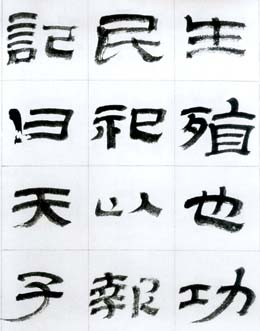 生殖也功
民祀以報
記曰天子